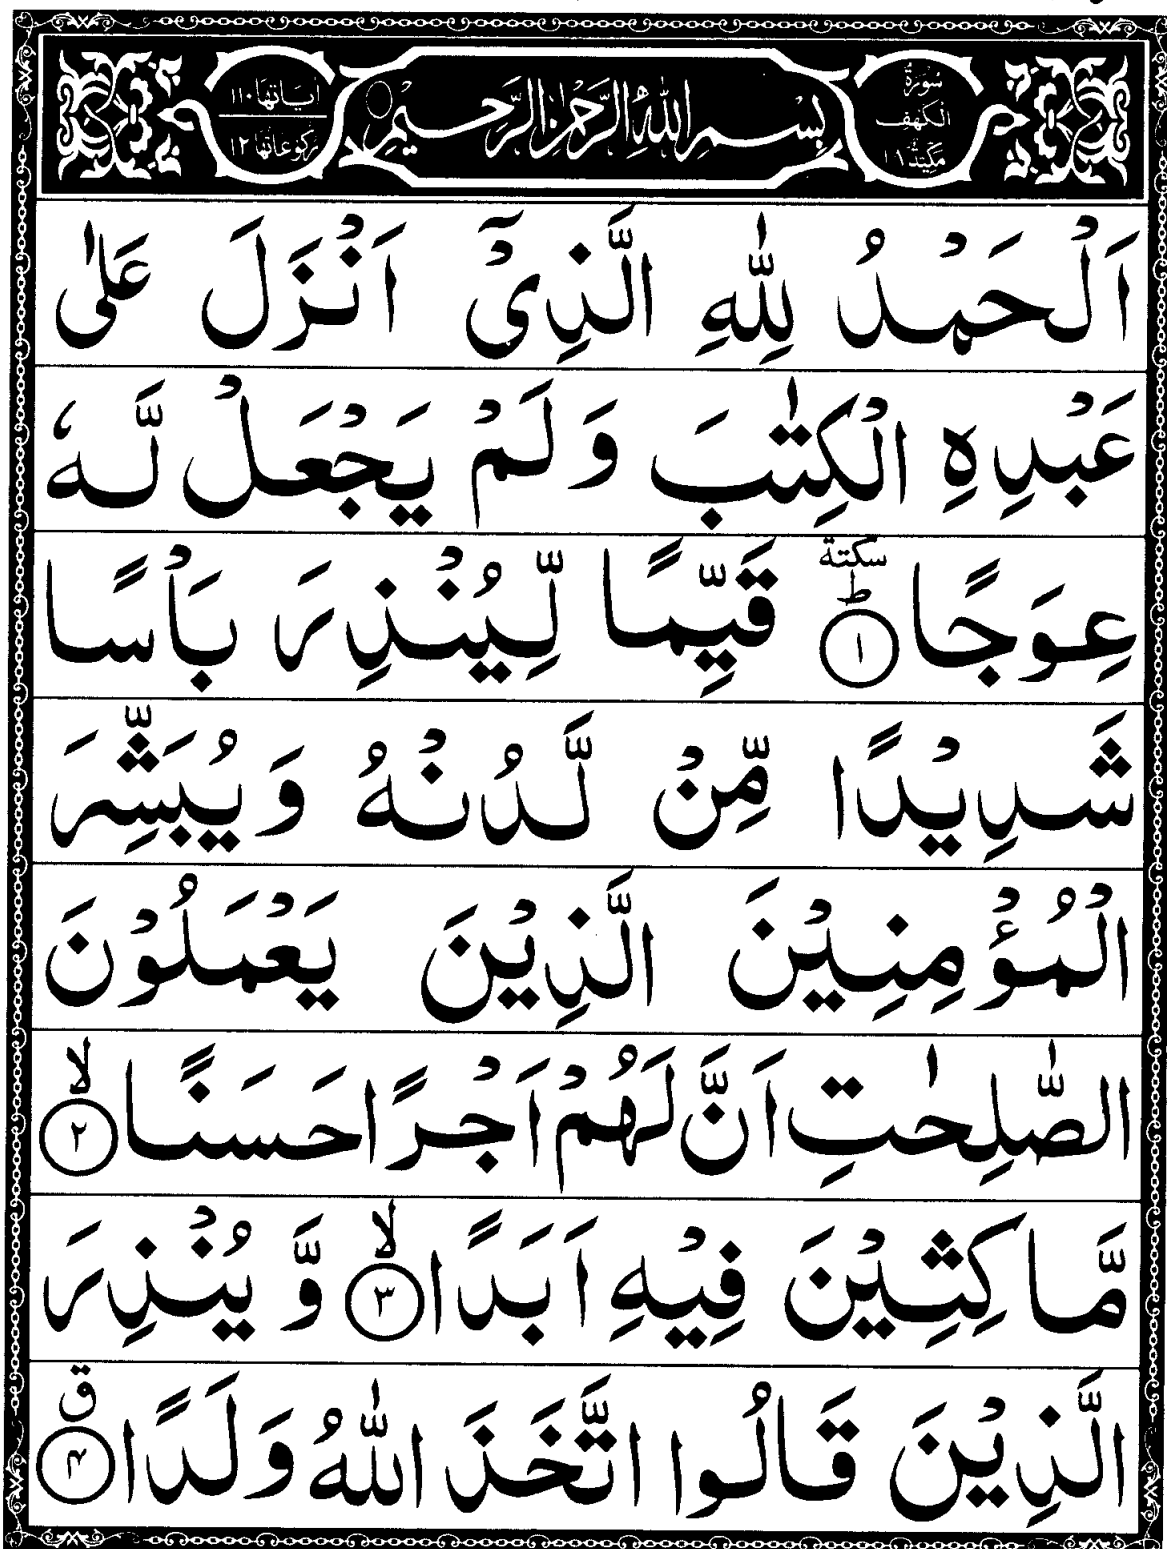 سُوْرَةُ
الْكَهْفِ
مَكِّيَّةٌ
بِسْمِ اللّٰهِ الرَّحْمٰنِ الرَّحِيْمِ
اٰيَاتُهَا ١١٠
رُكُوْعَاتُهَا ١٢
اَلْحَمْدُ لِلّٰهِ الَّذِيْٓ اَنْزَلَ عَلٰى
عَبْدِهِ الْكِتٰبَ وَلَمْ يَجْعَلْ لَّهٗ
عِوَجًا ؕ سكتة ١ قَيِّمًا لِّيُنْذِرَ بَاْسًا
شَدِيْدًا مِّنْ لَّدُنْهُ وَيُبَشِّرَ
الْمُؤْمِنِيْنَ الَّذِيْنَ يَعْمَلُوْنَ
الصّٰلِحٰتِ اَنَّ لَهُمْ اَجْرًا حَسَنًا ۙ ٢
مَّاكِثِيْنَ فِيْهِ اَبَدًا ۙ ٣ وَّيُنْذِرَ
الَّذِيْنَ قَالُوا اتَّخَذَ اللّٰهُ وَلَدًا ق ٤